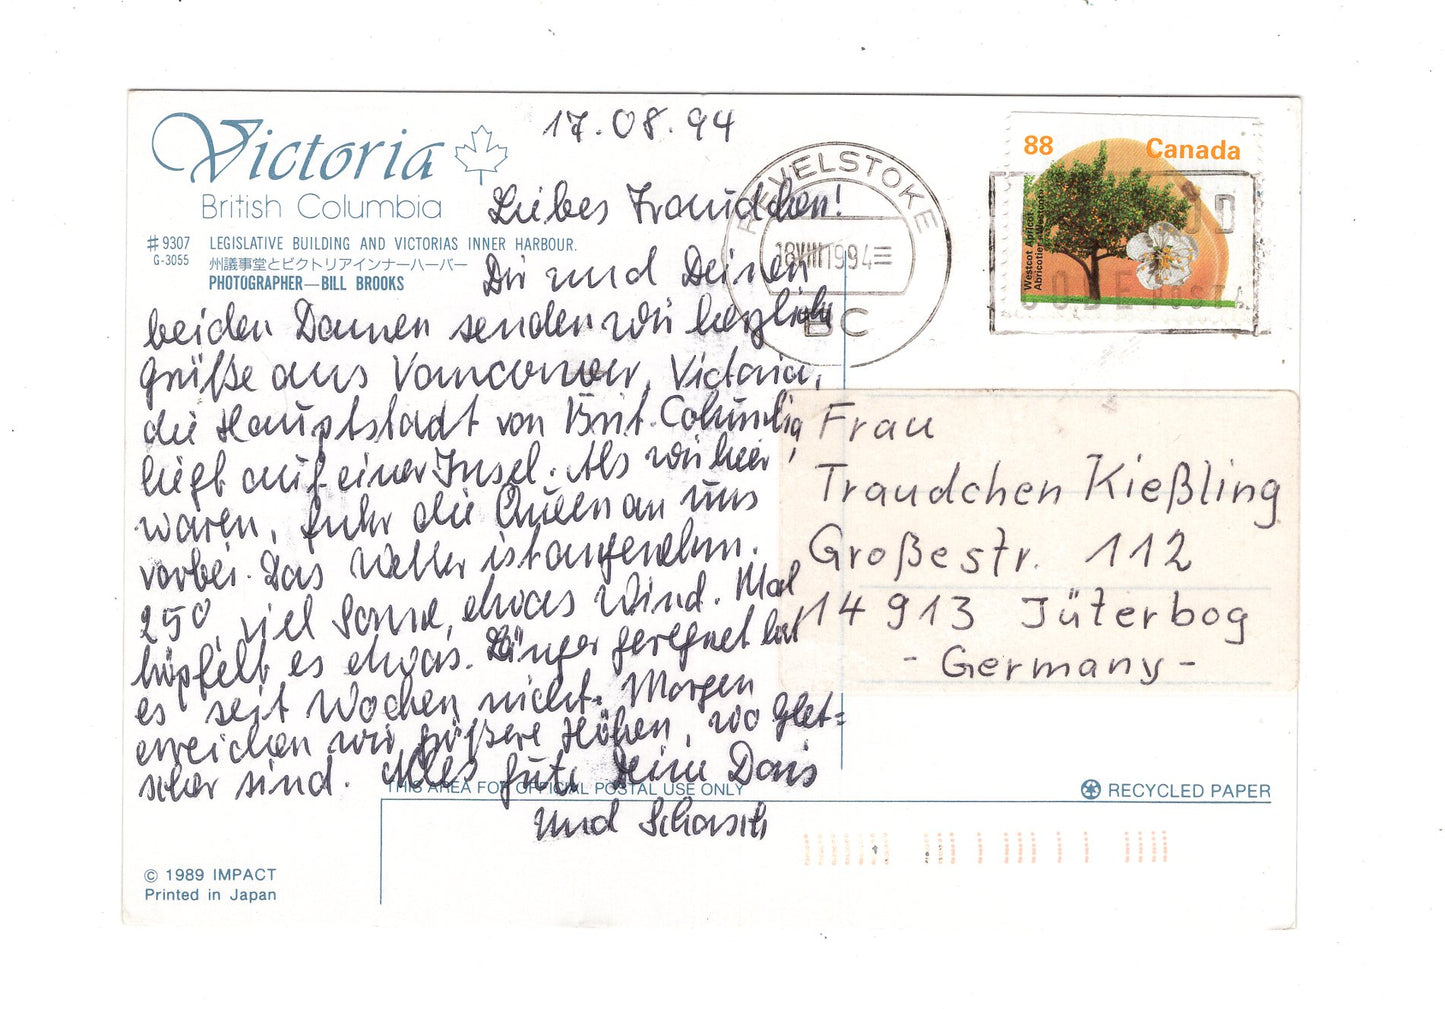 Victoria
British Columbia
#9307 LEGISLATIVE BUILDING AND VICTORIAS INNER HARBOUR.
G-3055 州議事堂とビクトリアインナーハーバー
PHOTOGRAPHER—BILL BROOKS
17.08.94
Liebes Traudchen!
Dir und Deinen
beiden Damen senden wir herzliche
Grüße aus Vancouver, Victoria,
die Hauptstadt von Brit. Columbia,
liegt auf einer Insel. Als wir hier
waren, fuhr die Queen an uns
vorbei. Das Wetter ist angenehm.
25°, viel Sonne, etwas Wind. Mal
tröpfelt es etwas. Länger geregnet hat
es seit Wochen nicht. Morgen
erreichen wir größere Höhen, wo Glet=
scher sind. Alles Gute Deine Doris
und
REVELSTOKE
18 VIII 1994
BC
88 Canada
Westcot Apricot
Abricotier Westcot
CODE POSTAL
Frau
Traudchen Kießling
Großestr. 112
14913 Jüterbog
- Germany -
THIS AREA FOR OFFICIAL POSTAL USE ONLY
RECYCLED PAPER
© 1989 IMPACT
Printed in Japan